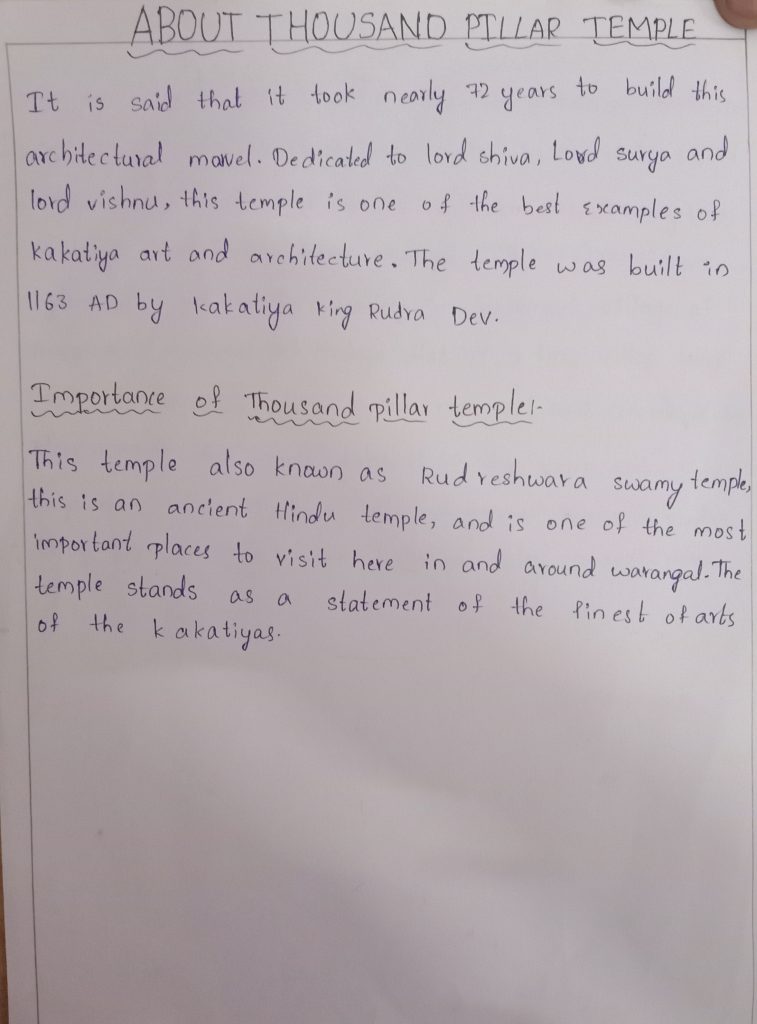 ABOUT THOUSAND PILLAR TEMPLE
It is said that it took nearly 72 years to build this
architectural marvel. Dedicated to lord shiva, Lord surya and
lord vishnu, this temple is one of the best Examples of
kakatiya art and architecture. The temple was built in
1163 AD by kakatiya king Rudra Dev.
Importance of Thousand pillar temple:-
This temple also known as Rudreshwara swamy temple,
this is an ancient Hindu temple, and is one of the most
important places to visit here in and around warangal. The
temple stands as a statement of the finest of arts
of the kakatiyas.